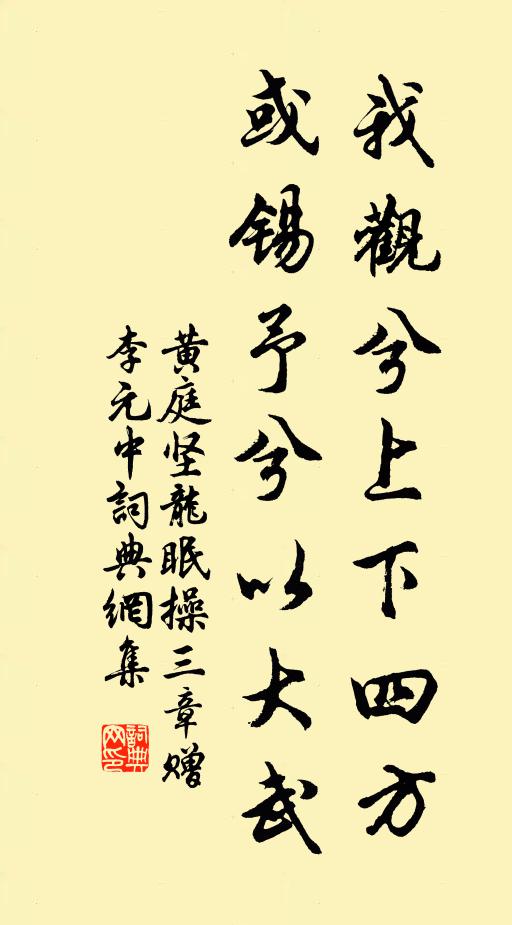 我觀兮上下四方
或錫予兮以大武
黄庭坚龍眠操三章贈
李元中詞典網集
詞典
网印